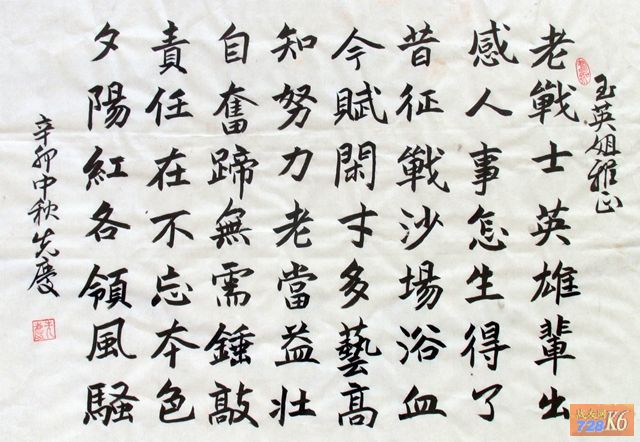 玉英姐雅正
老戰士英雄輩出
感人事怎生得了
昔征戰沙場浴血
今賦閑才多藝高
知努力老當益壯
自奮蹄無需錘敲
責任在不忘本色
夕陽紅各領風騷
辛卯中秋先慶
战友网
728 K6